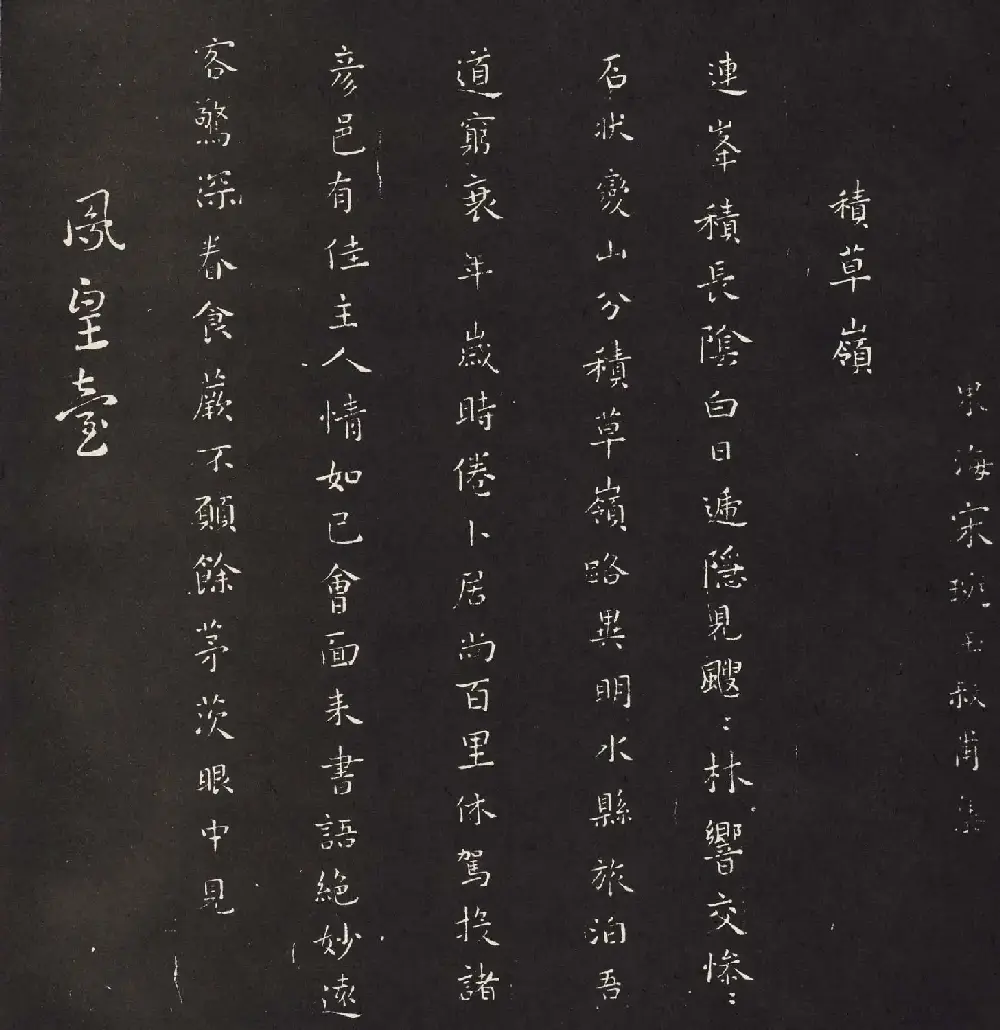 東海宋琬玉叔甫集
積草嶺
連峯積長陰白日遞隱見颼〻林響交慘〻
石狀變山分積草嶺路異明水縣旅泊吾
道窮衰年歲時倦卜居尚百里休駕投諸
彦邑有佳主人情如已會面来書語絶妙遠
客驚深眷食蕨不願餘茅茨眼中見
鳳皇臺